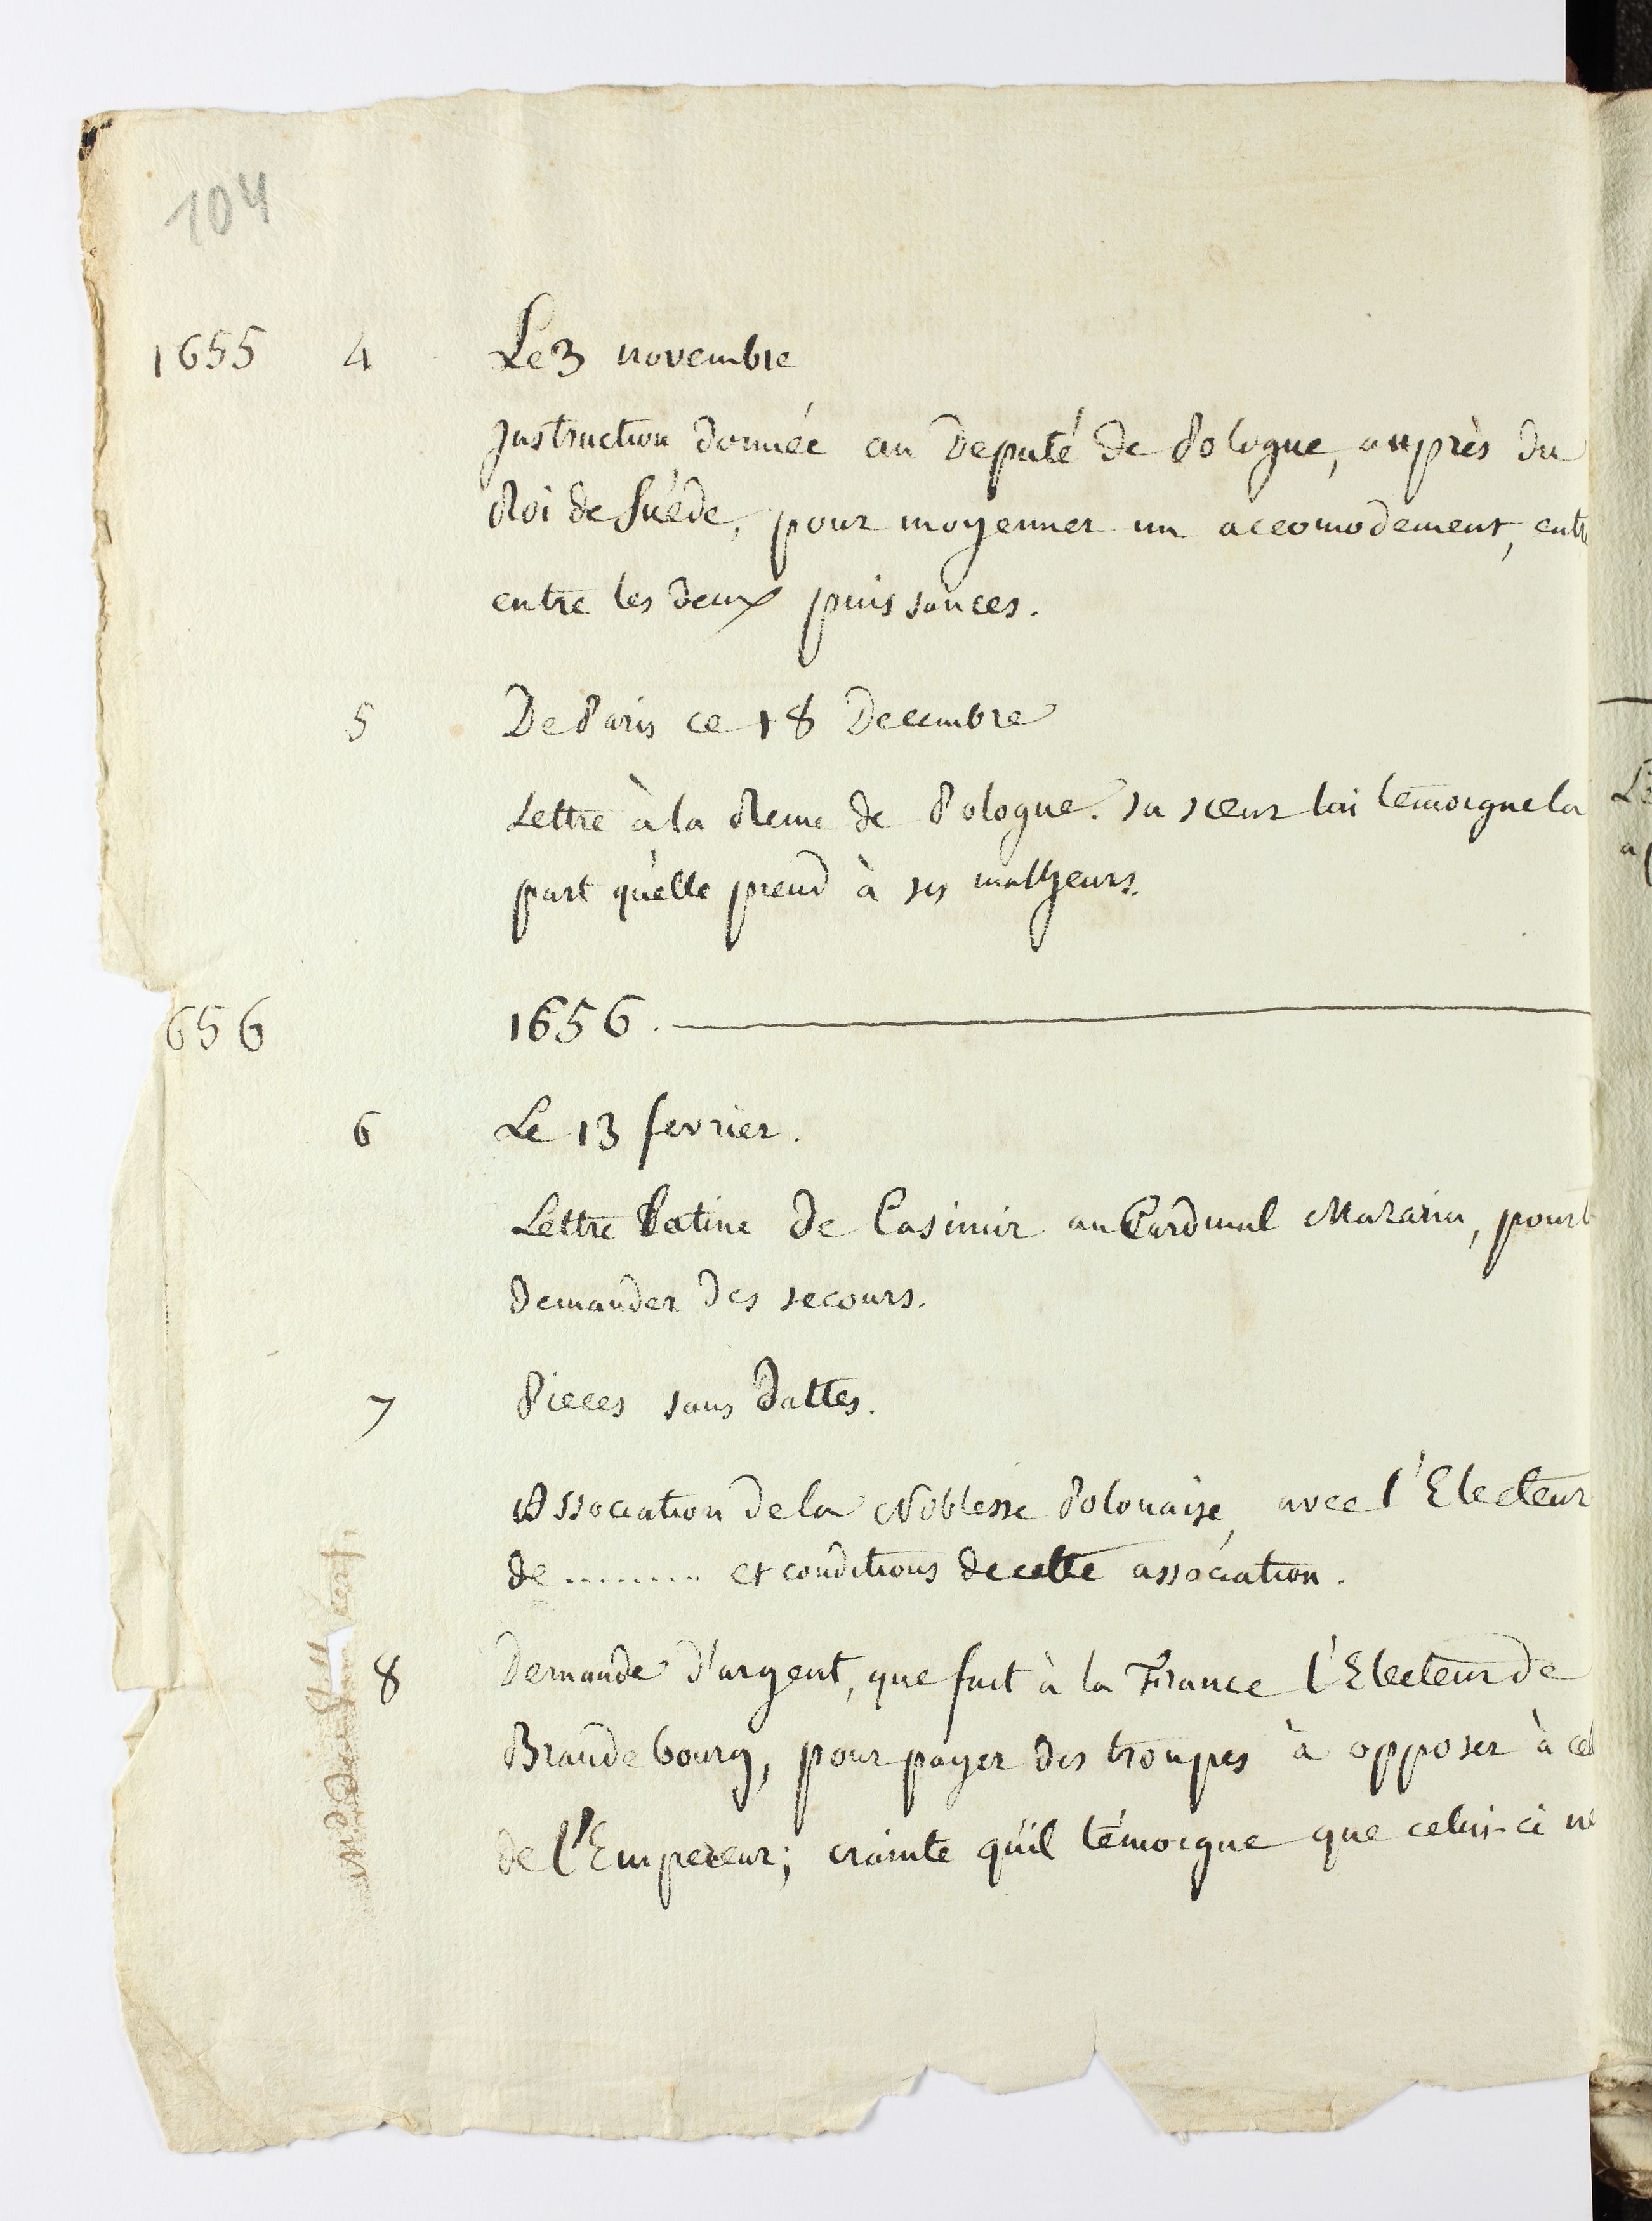 104
1655 4 Le 3 novembre
Instruction donnée au Deputé de Pologne, auprès du
Roi de Suéde, pour moyenner un accomodement, entr
entre les deux puissances.
5 De Paris ce 18 Decembre
Lettre à la Reine de Pologne. Sa sœur lui témoigne la
part qu'elle prend à ses malheurs.
656 1656.
6 Le 13 fevrier.
Lettre Latine de Casimir au Cardinal Mazarin, pour
demander des secours.
7 Pieces sans dattes.
Association de la Noblesse Polonaise, avec l'Electeur
de ......... et conditions de cette association.
8 Demande d'argent, que fait à la France l'Electeur de
Brandebourg, pour payer des troupes à opposer à cel
de l'Empereur; crainte qu'il témoigne que celui-ci ne